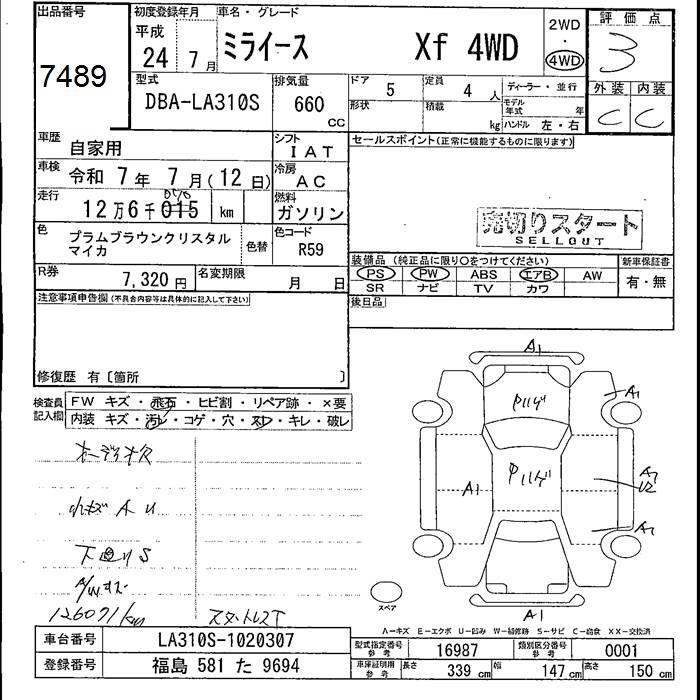 出品番号
7489
初度登録年月
平成
24 年 7 月
車名・グレード
ミライース Xf 4WD
2WD
・
4WD
評価点
3
外装 内装
C C
型式
DBA-LA310S
排気量
660 cc
ドア 5
定員 4 人
ディーラー・並行
形状
積載 kg
モデル年式 年
ハンドル 左・右
車歴
自家用
シフト
IAT
セールスポイント(正常に機能するものに限ります)
車検
令和 7 年 7 月 (12 日)
冷房
AC
走行
12 万 6 千 015 km
燃料
ガソリン
売切りスタート
SELLOUT
色
プラムブラウンクリスタル
マイカ
色替
色コード
R59
装備品 (純正品に限り○をつけてください)
新車保証書
PS PW ABS エアB AW
有・無
SR ナビ TV カワ
R券
7,320 円
名変期限
月 日
後日品
注意事項申告欄(不具合内容等は具体的に記入して下さい)
修復歴 有〔箇所 〕
検査員記入欄
FW キズ・飛石・ヒビ割・リペア跡・×要
内装 キズ・汚レ・コゲ・穴・スレ・キレ・破レ
オーディオ欠
小キズ A U
下廻り S
A/Wキズ
126071km
スタットレスT
A1
A1
A1
A1
スペア
A-キズ E-エクボ U-凹み W-補修跡 S-サビ C-腐食 XX-交換済
車台番号
LA310S-1020307
登録番号
福島 581 た 9694
型式指定番号 参考
16987
類別区分番号 参考
0001
車庫証明用 参考
長さ 339 cm
幅 147 cm
高さ 150 cm